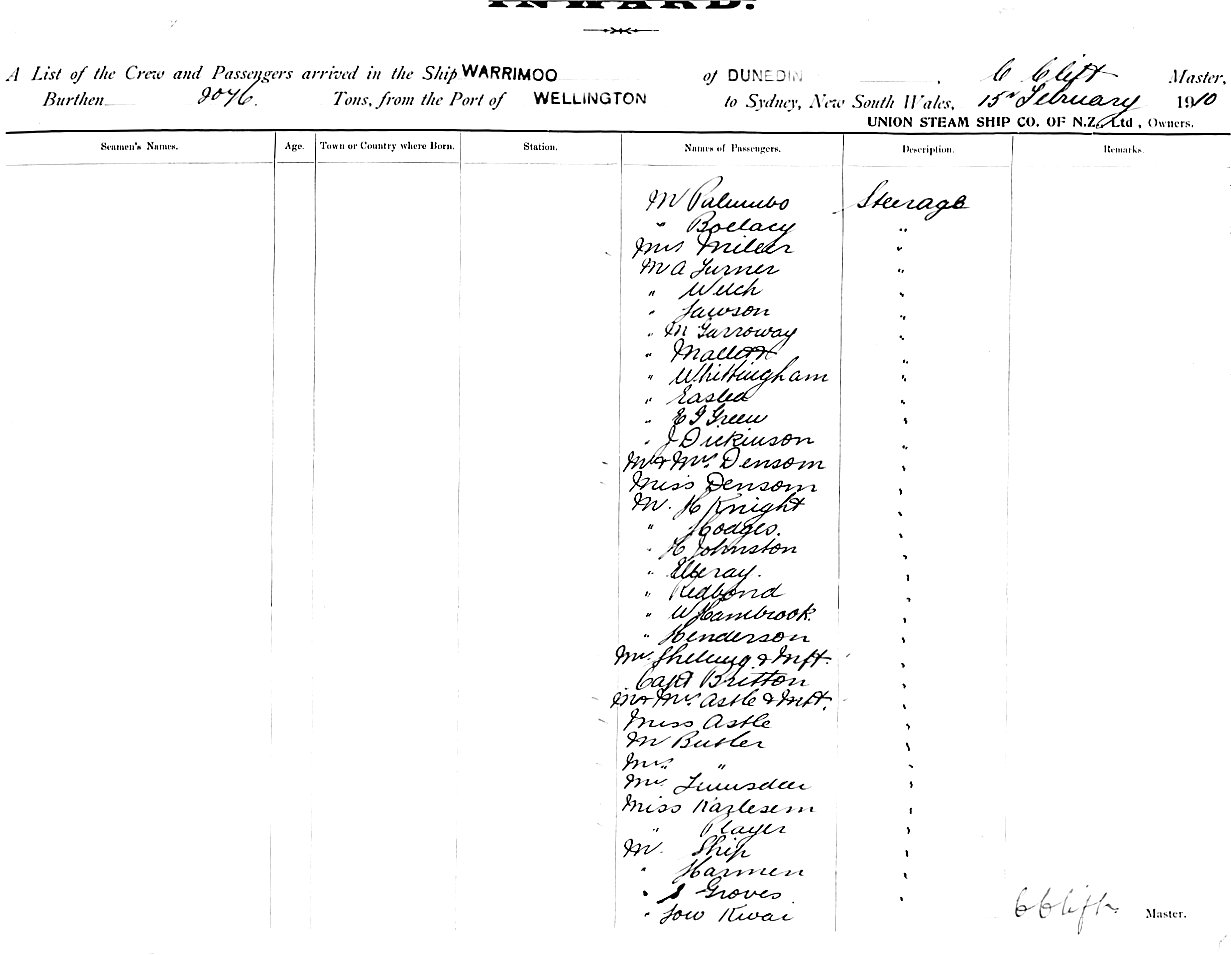 INWARD.
A List of the Crew and Passengers arrived in the Ship WARRIMOO of DUNEDIN, C Clift Master,
Burthen 2076. Tons, from the Port of WELLINGTON to Sydney, New South Wales, 15th February 1910
UNION STEAM SHIP CO. OF N.Z., Ltd, Owners.
Seamen's Names. Age. Town or Country where Born. Station. Names of Passengers. Description. Remarks.
Mr Palumbo Steerage
" "
Mrs Miller "
Mr A Turner "
" Welch "
" Lawson "
" M Garroway "
" Mallett "
" Whittingham "
" "
" Green "
" J Dickinson "
Mr & Mrs Densom "
Miss Densom "
Mr. H Knight "
" Hodges. "
" H Johnston "
" "
" Redbond "
" W Hambrook. "
" Henderson "
Mrs. & Inft. "
Capt Britton "
Mr & Mrs. Astle & Inft. "
Miss Astle "
Mr Butler "
Mrs " "
Mr. "
Miss "
" Player "
Mr. Ship "
" Harmen "
" S Groves "
" Low Kwai
C Clift Master.